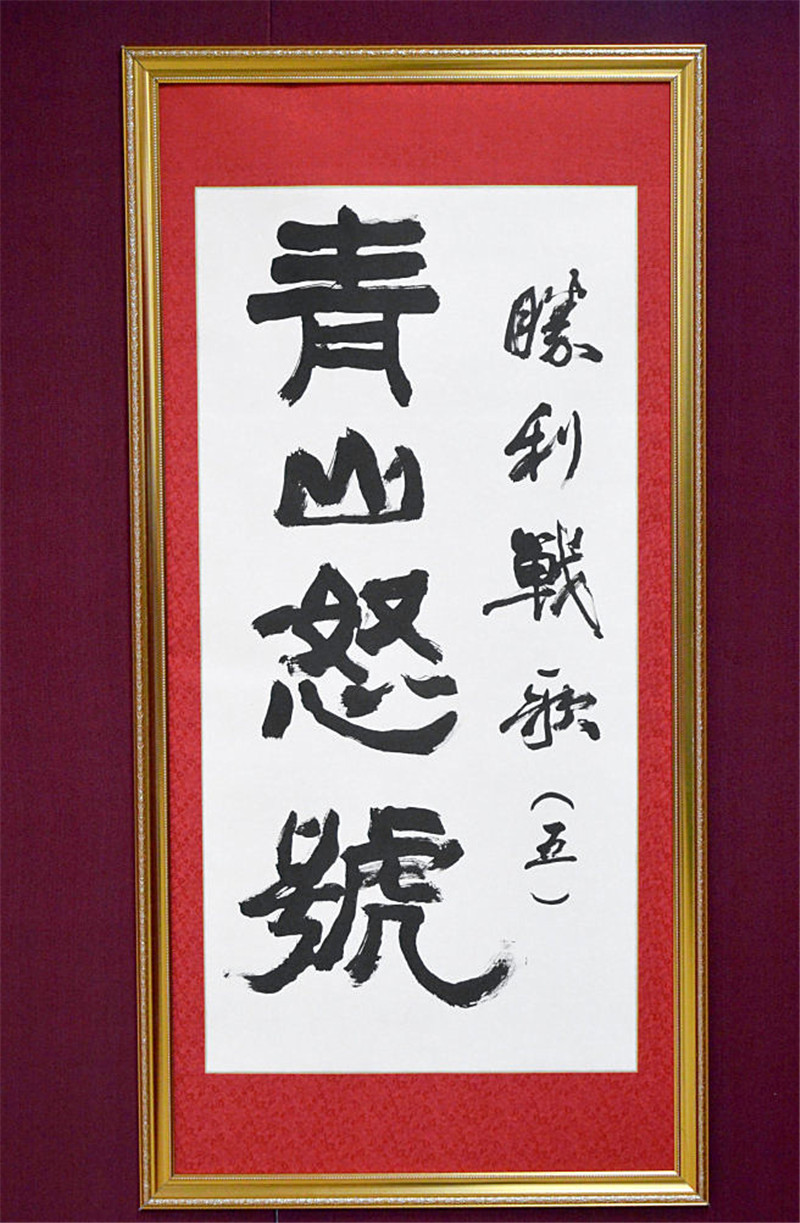 勝利戰歌（五）
青山怒號